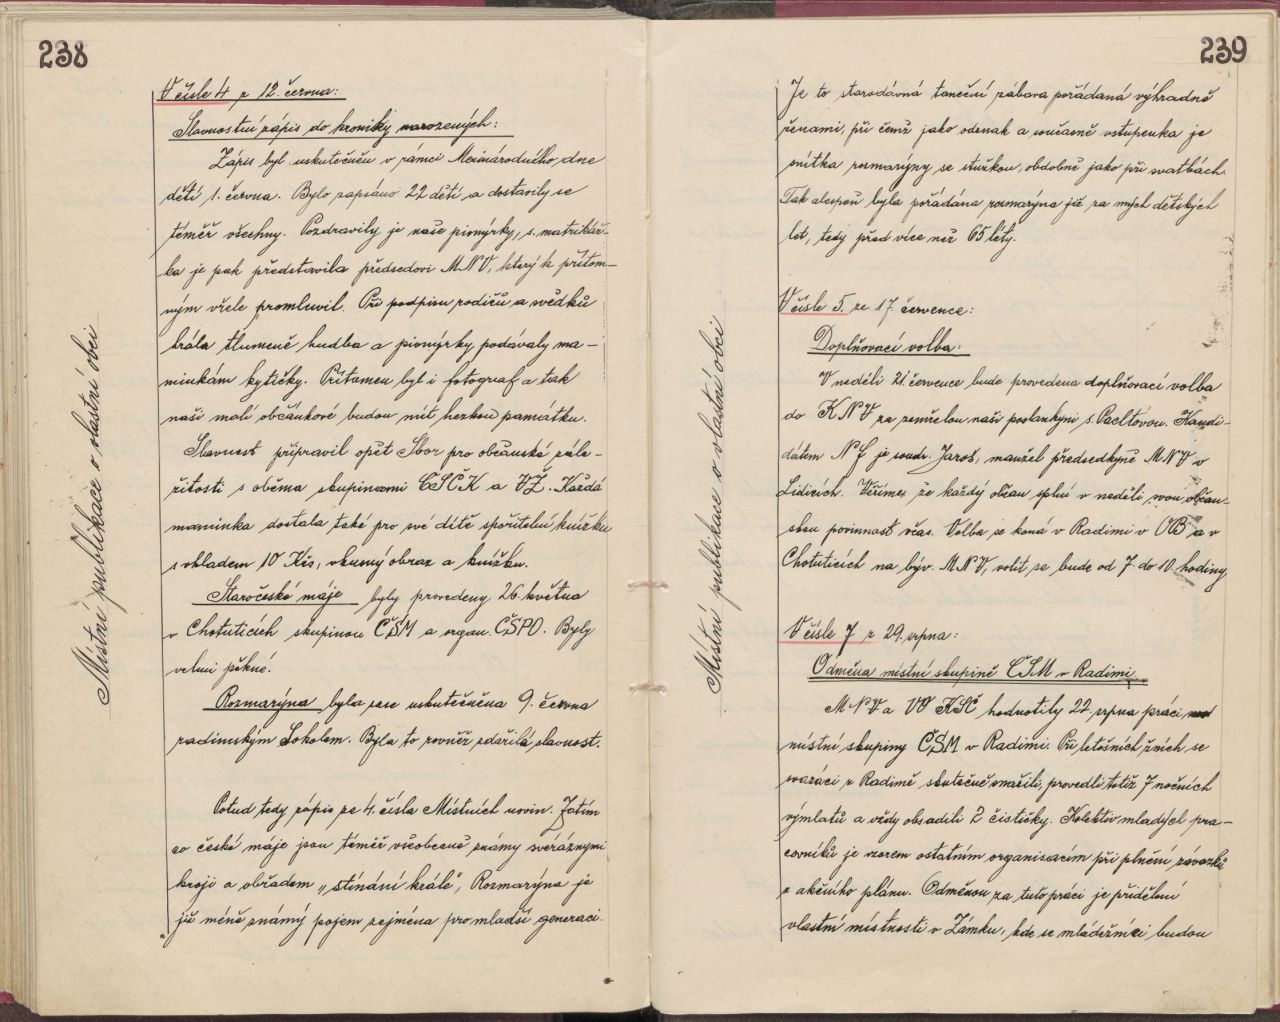 238
Místní publikace o vlastní obci
V čísle 4 z 12. června:
Slavnostní zápis do kroniky narozených:
Zápis byl uskutečněn v rámci Mezinárodního dne
dětí 1. června. Bylo zapsáno 22 dětí, a dostavily se
téměř všechny. Pozdravily je naše pionýrky, s. matrikář-
ka je pak představila předsedovi MNV, který k přítom-
ným vřele promluvil. Při podpisu rodičů a svědků
hrála tlumeně hudba a pionýrky podávaly ma-
minkám kytičky. Přítomen byl i fotograf a tak
naši malí občánkové budou mít hezkou památku.
Slavnost připravil opět Sbor pro občanské zále-
žitosti s oběma skupinami ČSČK a VŽ. Každá
maminka dostala také pro své dítě spořitelní knížku
s vkladem 10 Kčs, vkusný obraz a knížku.
Staročeské máje byly provedeny 26. května
v Chotuticích skupinou ČSM a organ. ČSPO. Byly
velmi pěkné.
Rozmarýna byla zase uskutečněna 9. června
radimským Sokolem. Byla to rovněž zdařilá slavnost.
Potud tedy zápis ze 4. čísla Místních novin. Zatím
co české máje jsou téměř všeobecně známy svéráznými
kroji a obřadem „stínání krále", Rozmarýna je
již méně známý pojem zejména pro mladší generaci.
239
Místní publikace o vlastní obci
Je to starodávná taneční zábava pořádaná výhradně
ženami, při čemž jako odznak a současně vstupenka je
snítka rozmarýny se stužkou, obdobně jako při svatbách.
Tak alespoň byla pořádána rozmarýna již za mých dětských
let, tedy před více než 65 léty.
V čísle 5. ze 17. července:
Doplňovací volba:
V neděli 21. července bude provedena doplňovací volba
do KNV za zemřelou naši poslankyni s. Pacltovou. Kandi-
dátem NF je soudr. Jaroš, manžel předsedkyně MNV v
Lidicích. Věříme, že každý občan splní v neděli svou občan-
skou povinnost včas. Volba se koná v Radimi v OB a v
Chotuticích na býv. MNV, volit se bude od 7 do 10. hodiny
V čísle 7 z 29. srpna:
Odměna místní skupině ČSM v Radimi.
MNV a VO KSČ hodnotily 22. srpna práci
místní skupiny ČSM v Radimi. Při letošních žních se
svazáci z Radimě skutečně snažili, provedli totiž 7 nočních
výmlatů a vždy obsadili 2 čističky. Kolektiv mladých pra-
covníků je vzorem ostatním organisacím při plnění závazků
z akčního plánu. Odměnou za tuto práci je přidělení
vlastní místnosti v Zámku, kde se mládežníci budou